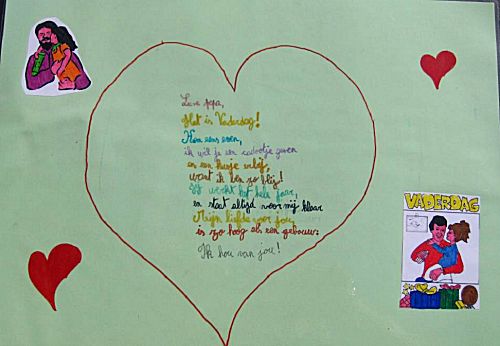 Lieve papa,
Het is Vaderdag!
Hou eens even,
ik wil je een cadeautje geven
en een kusje erbij,
want ik ben zo blij!
Jij werkt het hele jaar,
en staat altijd voor mij klaar
Mijn liefde voor jou,
is zo hoog als een gebouw:
Ik hou van jou!
VADERDAG